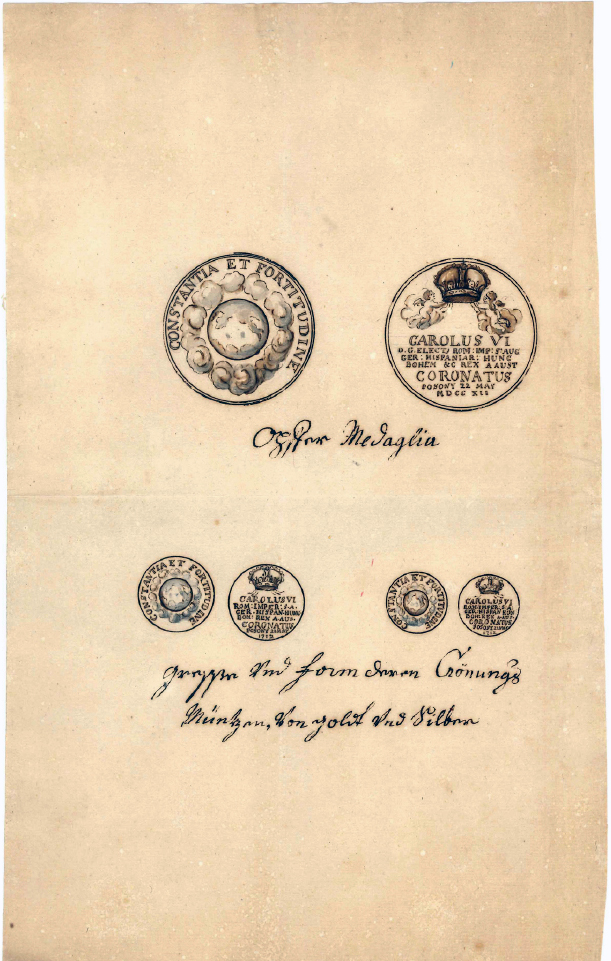 CONSTANTIA ET FORTITUDINE
CAROLUS VI
D. G. ELECT, ROM: IMP: S. AUG
GER: HISPANIAR: HUNG
BOHEM &C REX A AUST
CORONATUS
POSONY 22 MAY
MDCC XII
Opffer Medaglia
CONSTANTIA ET FORTITUDINE
CAROLUS VI
ROM: IMPER: S. A.
GER. HISPAN HUN
BOH: REX A. AUS.
CORONATUS
POSONY
1712
CONSTANTIA ET FORTITUDINE
CAROLUS VI
ROM: IMPER: S A
GER. HISPAN
BOH: REX A.
CORONATUS
POSONY
1712
greße Vnd form deren Crönungs
Müntzen, Von goldt Vnd Silber